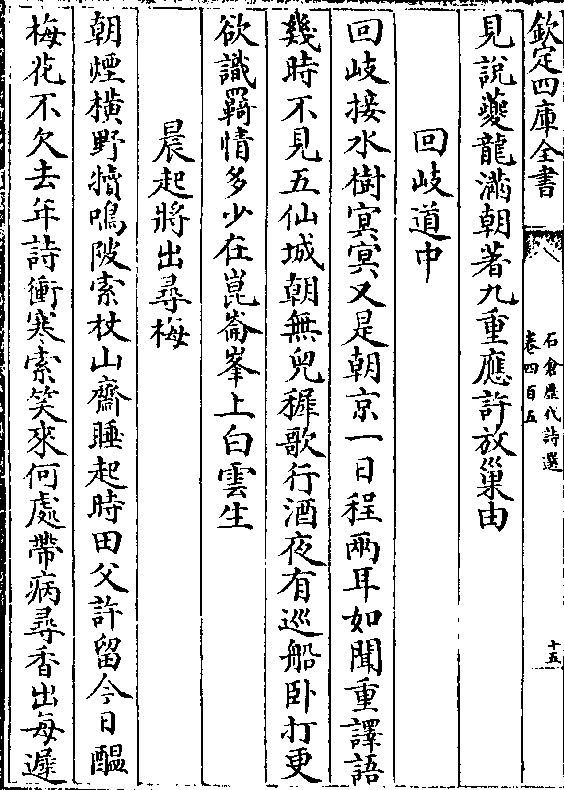 欽定四庫全書
石倉歷代詩選
卷四百五
十五
見說夔龍滿朝著九重應許放巢由
回岐道中
回岐接水樹冥冥又是朝京一日程兩耳如聞重譯語
幾時不見五仙城朝無兒稺歌行酒夜有巡船卧打更
欲識羇情多少在崑崙峯上白雲生
晨起將出尋梅
朝煙橫野犢鳴陂索杖山齋睡起時田父許留今日醖
梅花不欠去年詩衝寒索笑來何處帶病尋香出每遲